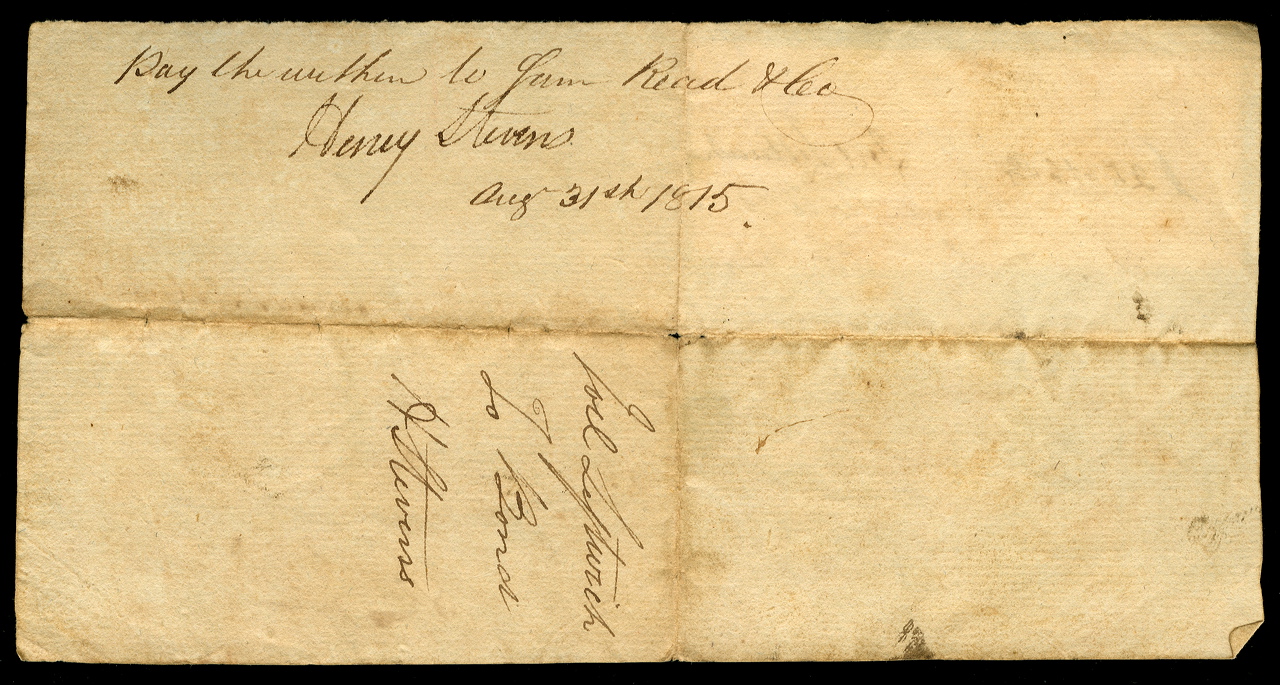 Pay the within to Sam Read & Co
Henry Stevens
Aug 31st 1815.
Joel Leftwich
To Bond
H Stevens